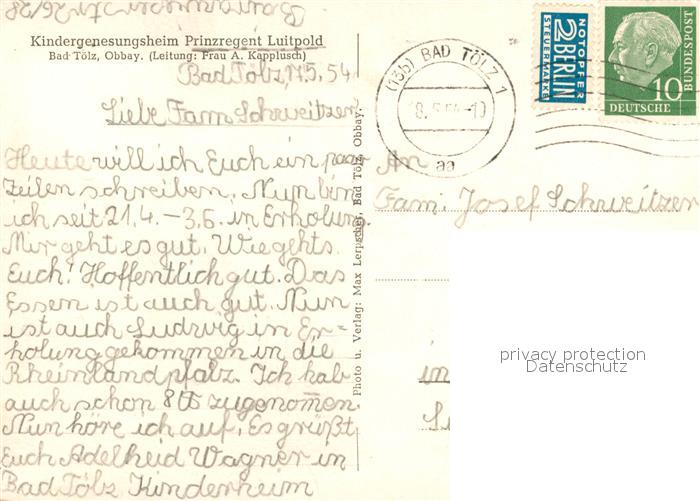 Kindergenesungsheim Prinzregent Luitpold
Bad Tölz, Obbay. (Leitung: Frau A. Kapplusch)
Bad Tölz, 17.5.54
Liebe Fam Schweitzer
Heute will ich Euch ein paar
Zeilen schreiben. Nun bin
ich seit 21.4. – 3.6. in Erholung.
Mir geht es gut. Wie gehts
Euch! Hoffentlich gut. Das
Essen ist auch gut. Nun
ist auch Ludwig in Er=
holung gekommen in die
Rheinlandpfalz. Ich hab
auch schon 8 zugenomen.
Nun höre ich auf. Es grüßt
Euch Adelheid Wagner in
Bad Tölz Kinderheim
Photo u. Verlag: Max Lerpscher, Bad Tölz, Obbay.
(13b) BAD TÖLZ 1
aa
NOTOPFER
2 BERLIN
STEUERMARKE
DEUTSCHE
BUNDESPOST
10
An
Fam. Josef Schweitzer
privacy protection
Datenschutz